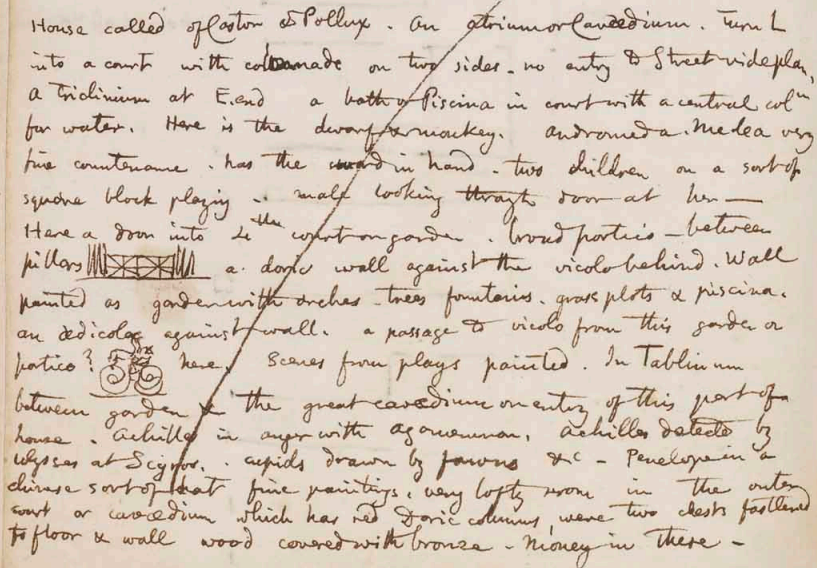 House called of Castor & Pollux. An atrium or Cavædium. Turn L
into a court with colonnade on two sides - no entry to Street vide plan,
A Triclinium at E. end a bath or Piscina in court with a central colⁿ
for water. Here is the dwarf & monkey. Andromeda. Medea very
fine countenance. has the sword in hand. two children on a sort of
square block playing .. male looking through door at her —
Here a door into 4th court or garden. broad portico - between
pillars a doric wall against the vicolo behind. Wall
painted as garden with arches - trees fountains. grass plots & piscina.
an ædicola against wall. a passage to vicolo from this garden or
portico? here. Scenes from plays painted. In Tablinum
between garden & the great cavædium on entry of this part of a
house. Achilles in anger with Agamemnon. Achilles detected by
Ulysses at Scyros. cupids drawn by fawns &c - Penelope in a
chinese sort of hat fine paintings. very lofty room in the outer
court or cavædium which has red Doric columns, were two chests fastened
to floor & wall wood covered with bronze - Money in these -